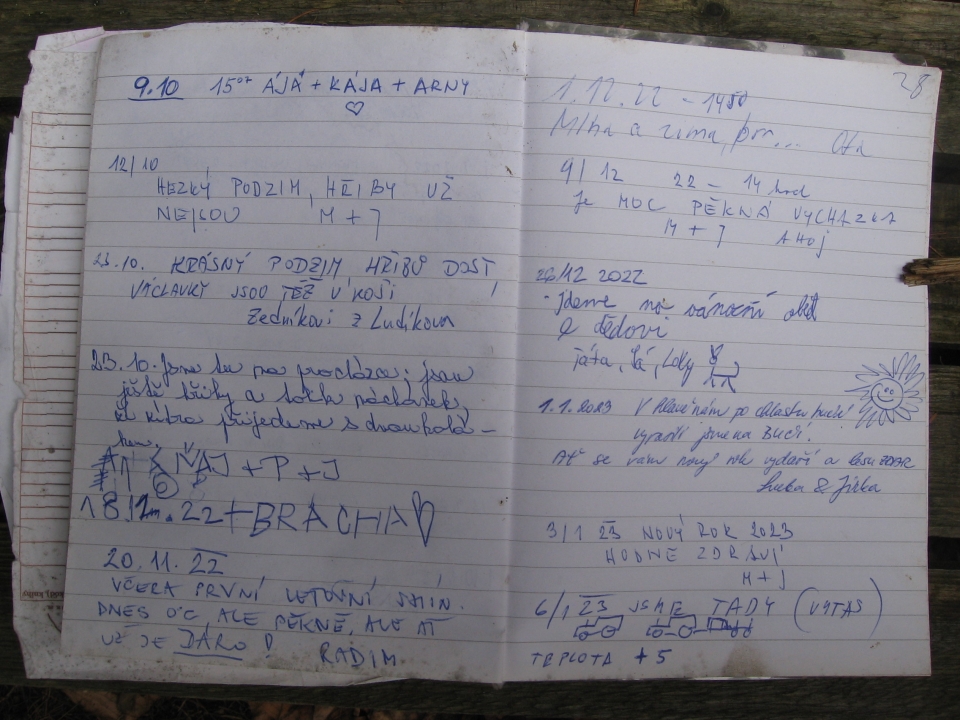 9.10 15⁰⁷ ÁJÁ + KÁJA + ARNY
12/10
HEZKÝ PODZIM, HŘIBY UŽ
NEJSOU M + J
23.10. KRÁSNÝ PODZIM HŘIBŮ DOST
VÁCLAVKY JSOU TÉŽ V KOŠI !
Zedníkovi z Ludíkova
23.10. Jsme tu na procházce, jsou
ještě hřiby a
přijedeme s dvoukolá-
kem.
+ P + J
18.11.22 + BRÁCHA
20.11.22
VČERA PRVNÍ LETOŠNÍ SNÍH.
DNES 0°C, ALE PĚKNĚ, ALE AŤ
UŽ JE JARO!
RADIM
28
1.12.22 - 14⁵⁰
Mlha a zima, brr... Ota
9/12 22 - 14 hod
Je MOC PĚKNÁ VYCHÁZKA
M + J AHOJ
26/12 2022
Jdeme na vánoční oběd
k dědovi
Táta, Lá, Lady
1.1.2023 V hlavě nám po chlastu hučí
vyrazili jsme na Bučí.
Ať se vám nový rok vydaří a lesu ZDAR
Luba & Jirka
3/1 23 NOVÝ ROK 2023
HODNĚ ZDRAVÍ
M + J
6/1 23 JSME TADY (VYTAS)
TEPLOTA +5